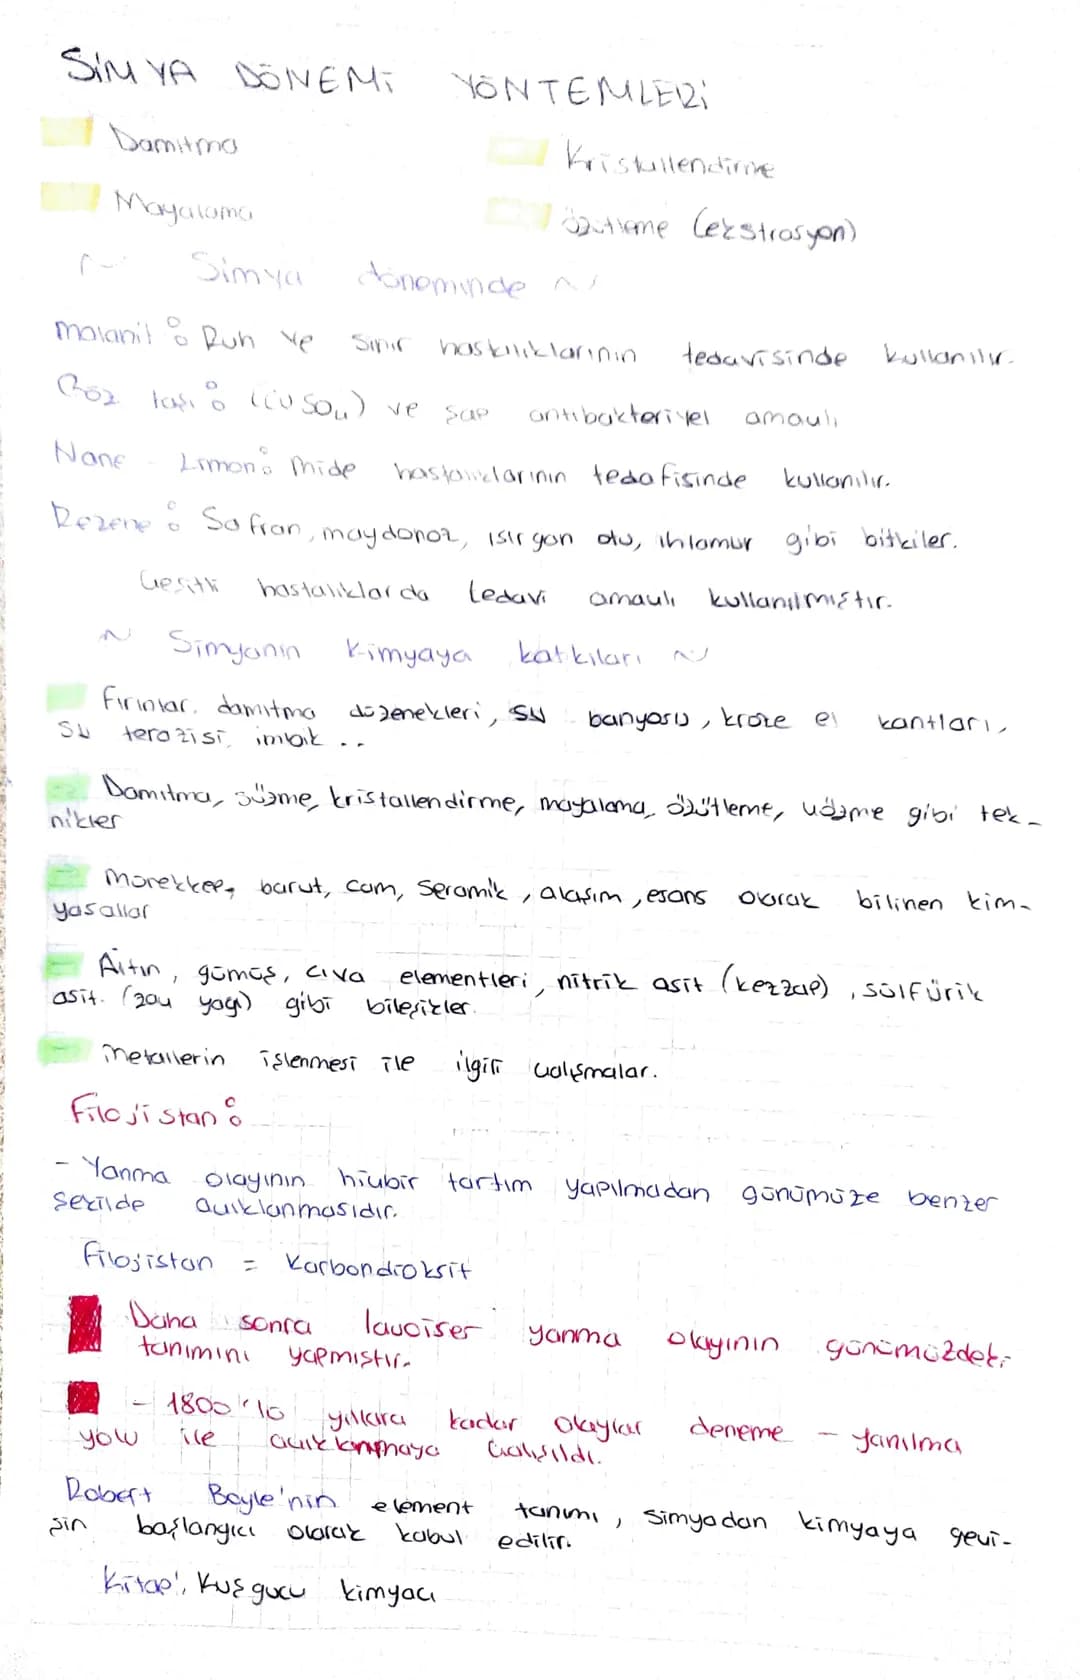 SİMYA DÖNEMİ YÖNTEMLERİ
Damıtma
Kristallendirme
Mayalama
özütleme (ekstrasyon)
~ Simya döneminde ~
malanit : Ruh ve sinir hastalıklarının tedavisinde kullanılır.
Göz taşı : (CuSO4) ve şap antibakteriyel amaçlı
Nane - Limon : mide hastalıklarının tedafisinde kullanılır.
Rezene : Safran, maydonoz, ısırgan otu, ıhlamur gibi bitkiler.
Çeşitli hastalıklarda tedavi amaçlı kullanılmıştır.
~ Simyanın kimyaya katkıları ~
Fırınlar, damıtma düzenekleri, su banyosu, kroze el kantları,
su terazisi, imbik ..
Damıtma, süzme, kristallendirme, mayalama, özütleme, çözme gibi tek-
nikler
Mürekkep, barut, cam, seramik, alaşım, esans olarak bilinen kim-
yasallar
Altın, gümüş, cıva elementleri, nitrik asit (kezzap), sülfürik
asit. (zaç yağı) gibi bileşikler.
metallerin işlenmesi ile ilgili çalışmalar.
Filojistan :
- Yanma olayının hiçbir tartım yapılmadan günümüze benzer
şekilde açıklanmasıdır.
Filojistan = Karbondioksit
Daha sonra lavoiser yanma olayının günümüzdeki
tanımını yapmıştır.
- 1800'lü yıllara kadar olaylar deneme - yanılma
yolu ile açıklanmaya çalışıldı.
Robert Boyle'nin element tanımı, simyadan kimyaya geçi-
şin başlangıcı olarak kabul edilir.
Kitap', Kuşgucu kimyacı